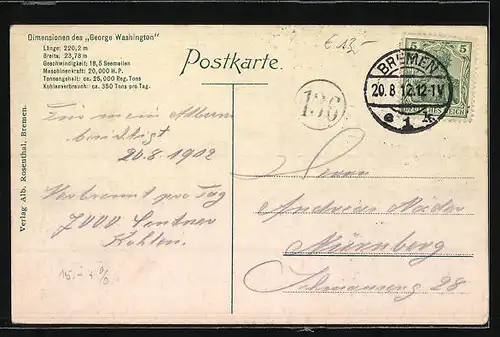 Dimensionen des „George Washington"
Länge: 220,2 m
Breite: 23,78 m
Geschwindigkeit: 18,5 Seemeilen
Maschinenkraft: 20,000 H.P.
Tonnengehalt: ca. 25,000 Reg. Tons
Kohlenverbrauch: ca. 350 Tons pro Tag.
€ 13,-
Postkarte.
5 5
BREMEN
20.8.12.12-1V
e 1 *
136
Für mein Album
20.8.1912
Verbrennt pro Tag
7000 Centner
Kohlen.
15.-
Herrn
Andreas
Nürnberg
28
Verlag Alb. Rosenthal, Bremen.